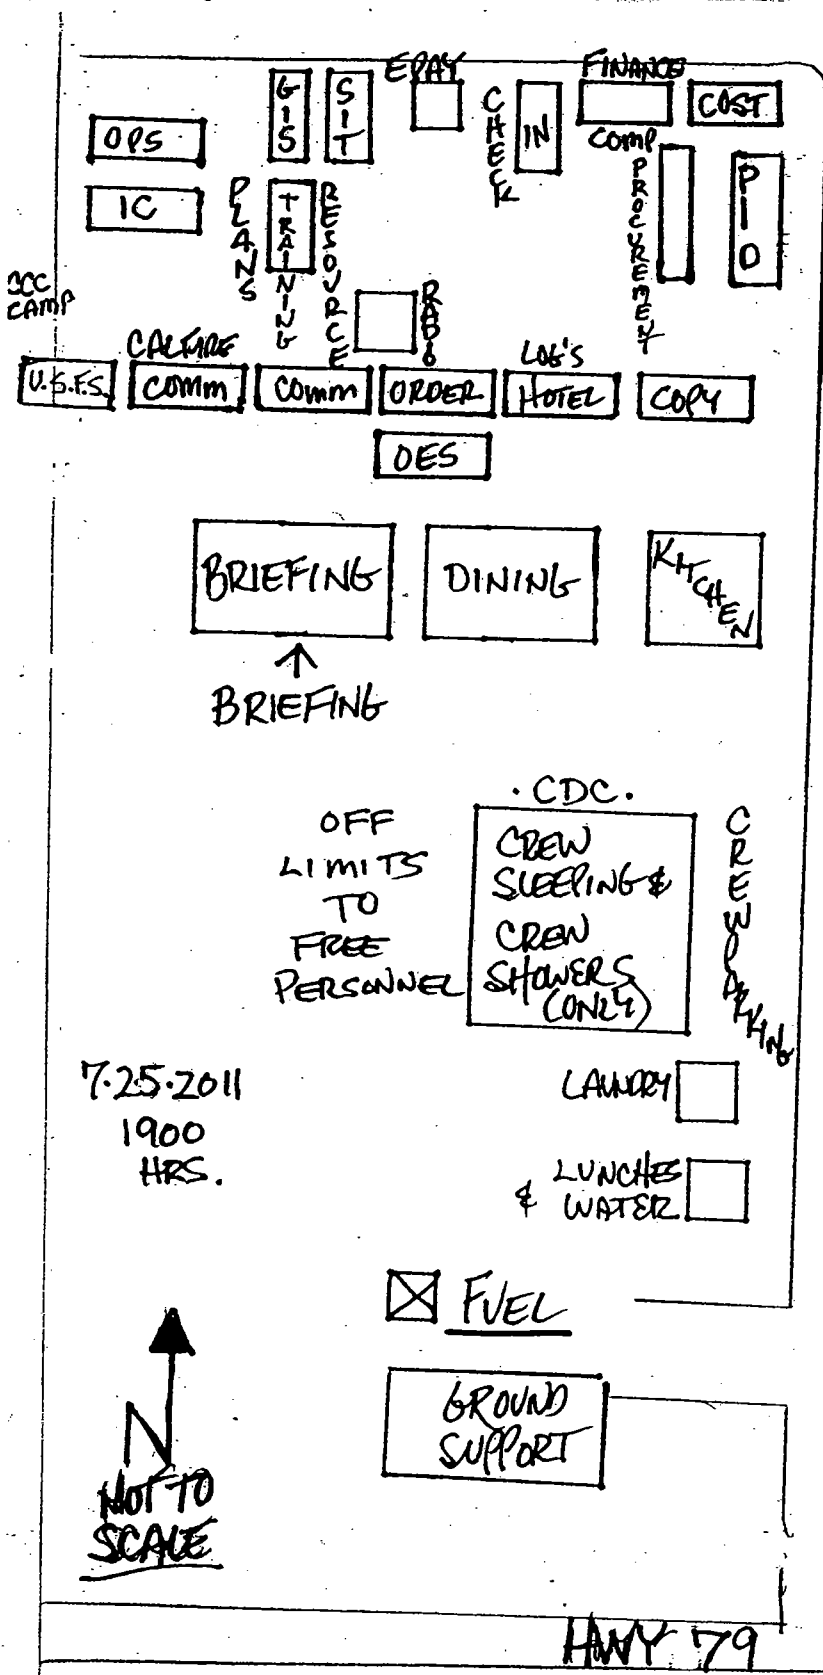 EPAY
FINANCE
GIS
SIT
CHECK
IN
COST
OPS
COMP
PROCUREMENT
PIO
IC
PLANS
TRAINING
RESOURCE
RADIO
CCC
CAMP
CALFIRE
LOG'S
U.S.F.S.
COMM
COMM
ORDER
HOTEL
COPY
OES
BRIEFING
DINING
KITCHEN
↑
BRIEFING
·CDC·
OFF
LIMITS
TO
FREE
PERSONNEL
CREW
SLEEPING &
CREW
SHOWERS
(ONLY)
CREW PARKING
7·25·2011
1900
HRS.
LAUNDRY
LUNCHES
& WATER
FUEL
GROUND
SUPPORT
N
NOT TO
SCALE
HWY 79